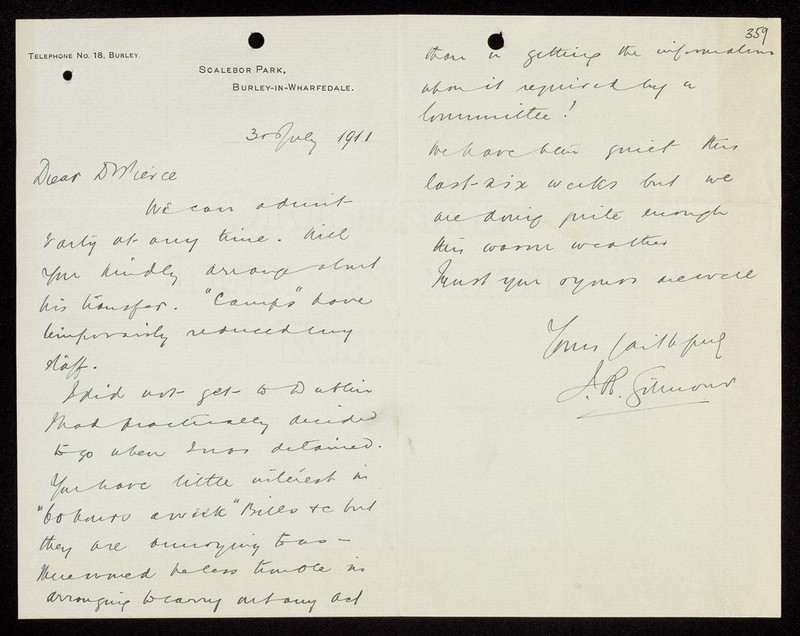 TELEPHONE No. 18, BURLEY.
SCALEBOR PARK,
BURLEY-IN-WHARFEDALE.
3rd July 1911
Dear Dr Pierce
We can admit
Varty at any time. Will
you kindly arrange about
his transfer. "Camps" have
temporarily reduced my
staff.
I did not get to Dublin
I had practically decided
to go when I was detained.
You have little interest in
"60 hours a week" Bills &c but
they are annoying to us —
There would be less trouble in
arranging to carry out any Act
359
than in getting the information
about it required by a
Committee!
We have been quiet this
last six weeks but we
are doing quite enough
this warm weather
Trust you & yours are well
Yours faithfully
J. R. Gilmour